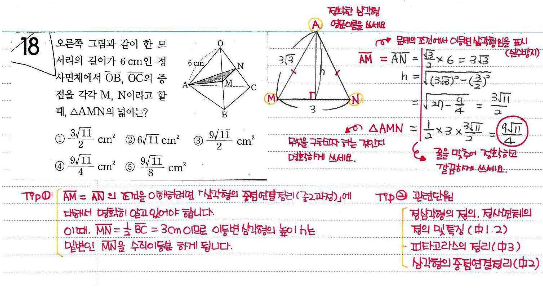 18 오른쪽 그림과 같이 한 모
서리의 길이가 6 cm인 정
사면체에서 OB, OC의 중
점을 각각 M, N이라고 할
때, △AMN의 넓이는?
① 3√11/2 cm² ② 6√11 cm² ③ 9√11/2 cm²
④ 9√11/4 cm² ⑤ 9√11/8 cm²
O
6 cm
N
A
M
C
B
정확한 삼각형
이름을 쓰세요
A
3√3
h
M
3
N
문제의 조건에서 이등변삼각형임을 표시
AM = AN = √3/2 × 6 = 3√3
h = √(3√3)² - (3/2)²
= √27 - 9/4 = 3√11/2
△AMN = 1/2 × 3 × 3√11/2 = 9√11/4
무엇을 구하고자 하는 것인지
명확하게 쓰세요.
줄을 맞추어 정확하고
깔끔하게 쓰세요.
Tip① AM = AN 의 조건을 이해하려면 「삼각형의 중점연결정리(중2과정)」에
대해서 명확히 알고 있어야 합니다.
이때, MN = 1/2 BC = 3cm 이므로 이등변삼각형의 높이 h는
밑변인 MN을 수직이등분 하게 됩니다.
Tip② 관련단원
정삼각형의 정의, 정사면체의
정의 및 특징 (中1·2)
피타고라스의 정리(中3)
삼각형의 중점연결정리(中2)